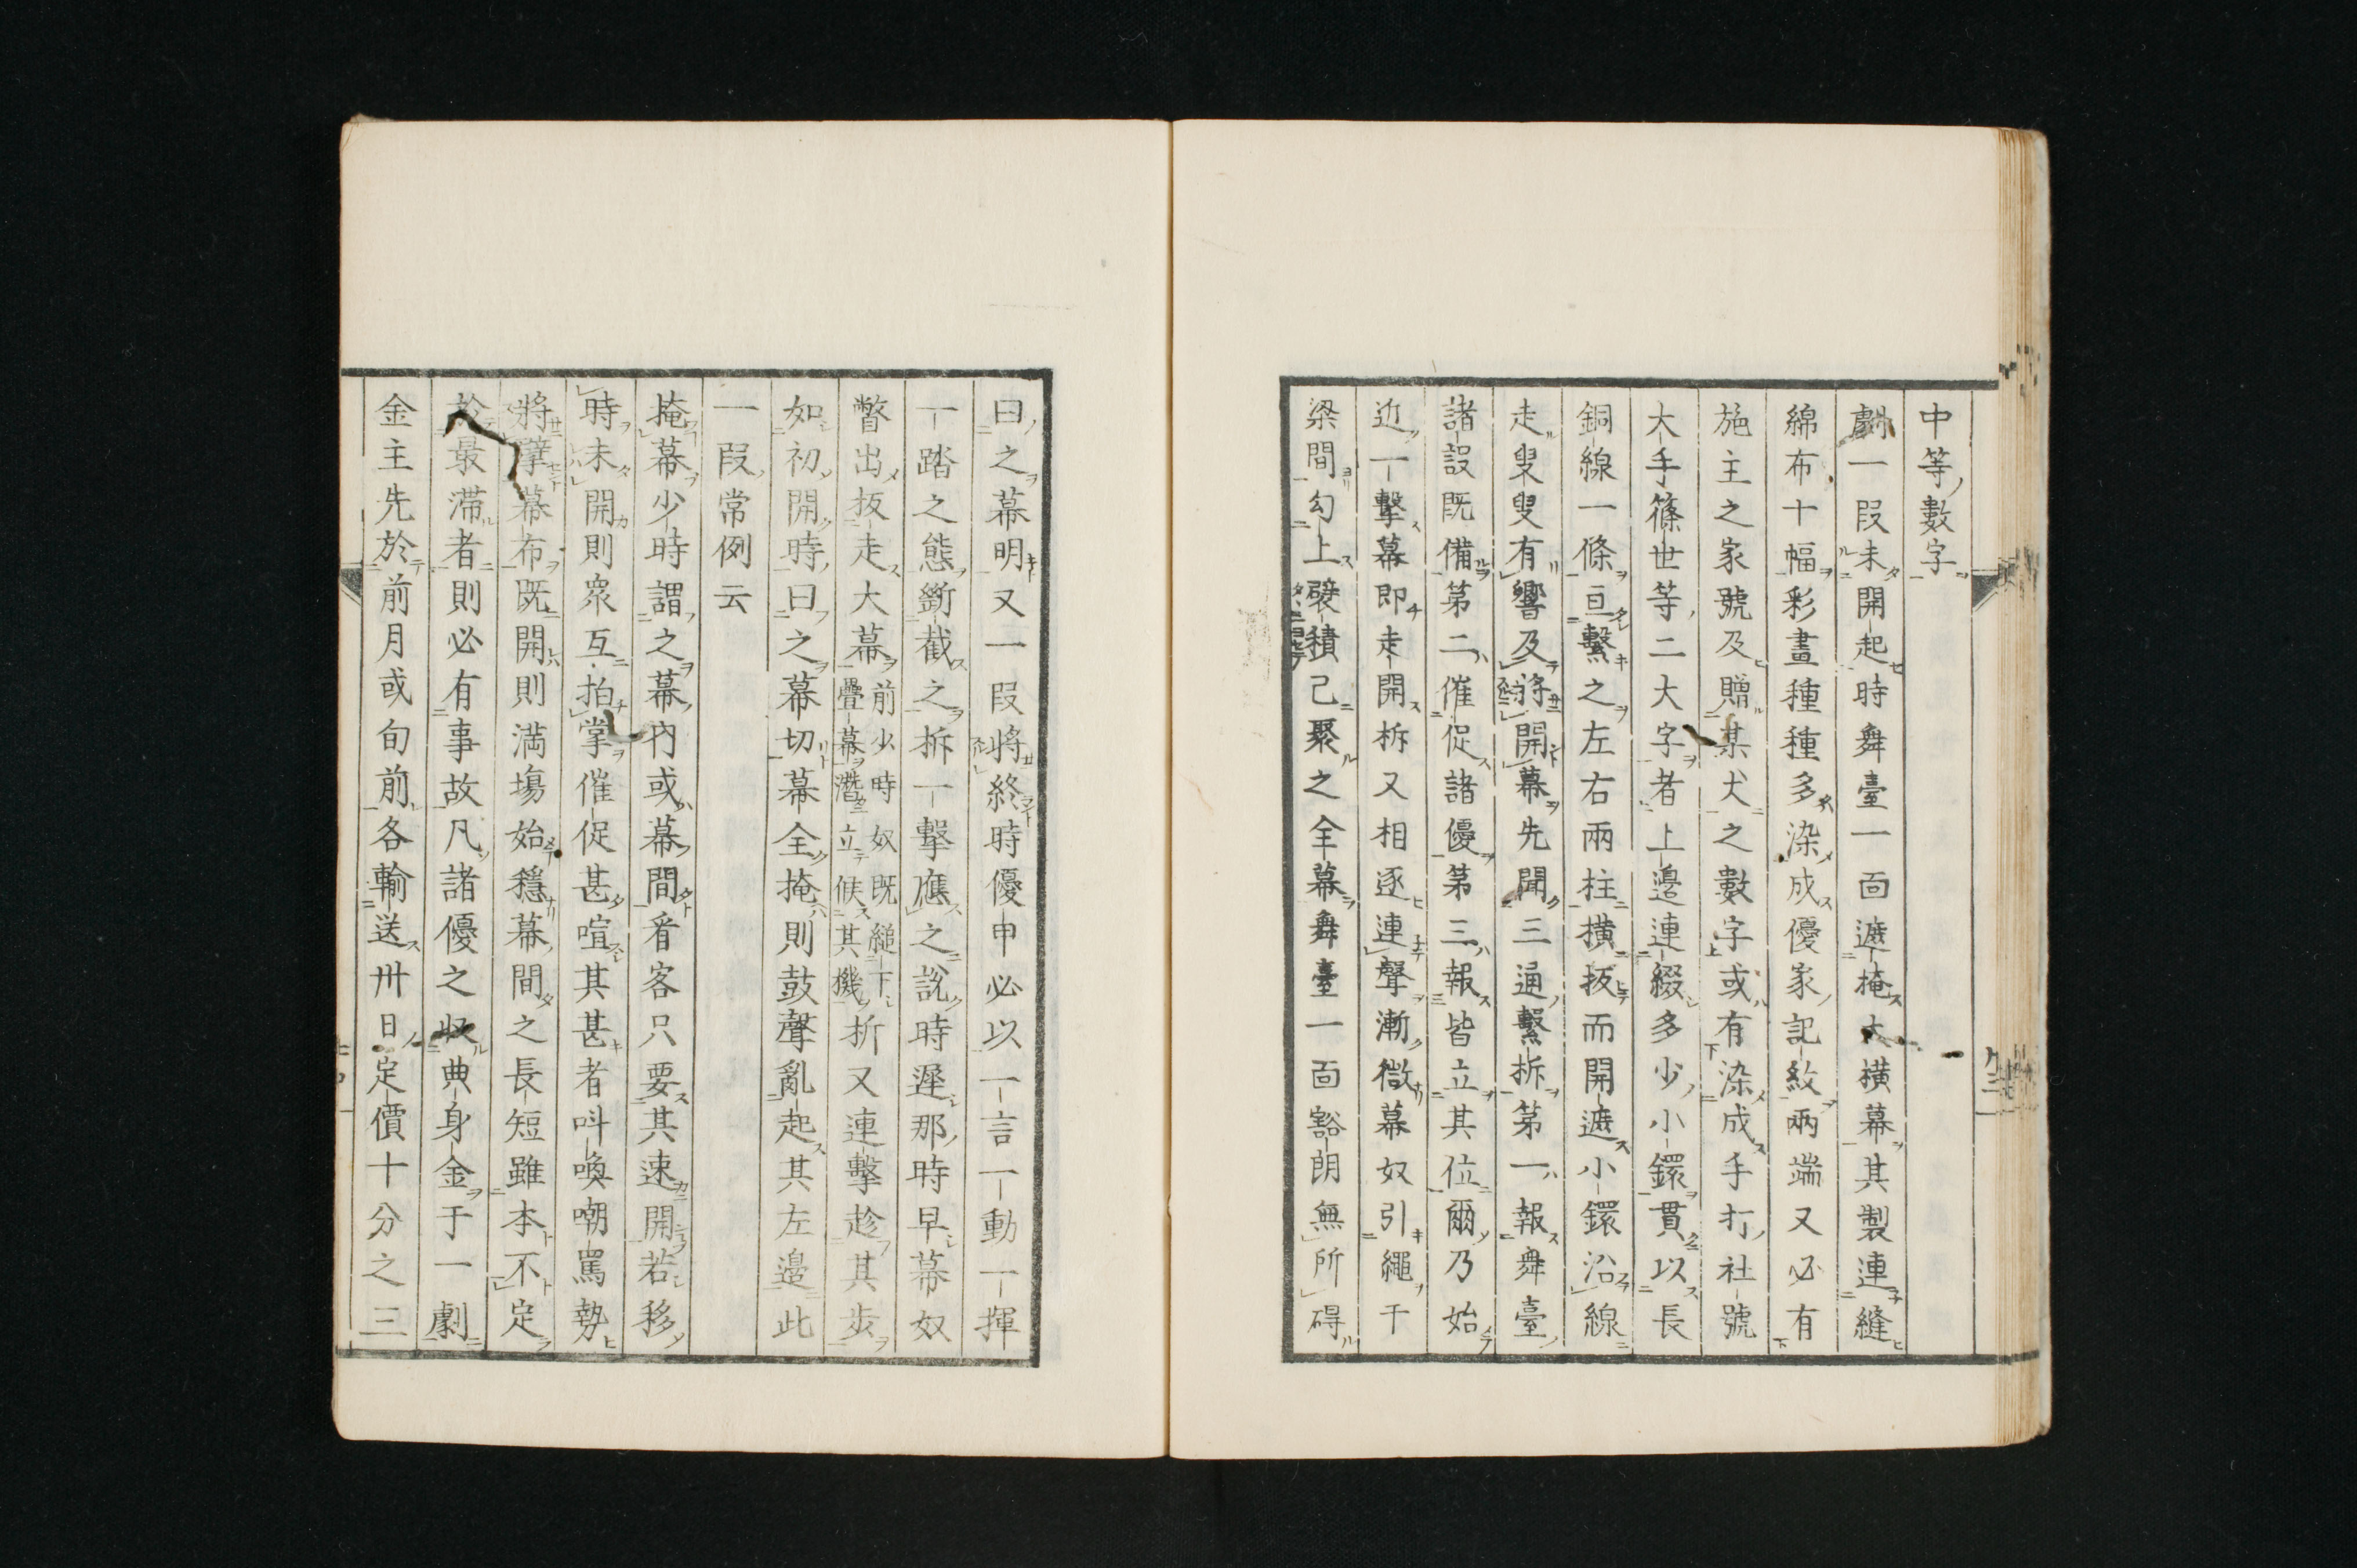 中等數字
劇一段未開起時舞臺一面遮掩大橫幕其製連縫
綿布十幅彩畫種種多染成優家記紋兩端又必有
施主之家號及贈某丈之數字或有染成手打社號
大手篠世等二大字者上邊連綴多少小鐶貫以長
銅線一條亘繫之左右兩柱橫扳而開遮小鐶沿線
走叟叟有響及將開幕先聞三通繫拆第一報舞臺
諸設既備第二催促諸優第三報皆立其位爾乃始
近一擊幕即走開柝又相逐連聲漸微幕奴引繩干
梁間勾上襞積已聚之全幕舞臺一面豁朗無所碍
曰之幕明又一段將終時優申必以一言一動一揮
一踏之態斷截之拆一擊應之說時遲那時早幕奴
瞥出扳走大幕前少時奴既縋下疊幕潛立候其機折又連擊趁其步
如初開時曰之幕切幕全掩則鼓聲亂起其左邊此
一段常例云
掩幕少時謂之幕内或幕間看客只要其速開若移
時未開則衆互拍掌催促甚喧其甚者叫喚嘲罵勢
將擘幕布既開則満場始穩幕間之長短雖本不定
於最滯者則必有事故凡諸優之収典身金于一劇
金主先於前月或旬前各輸送卅日定價十分之三